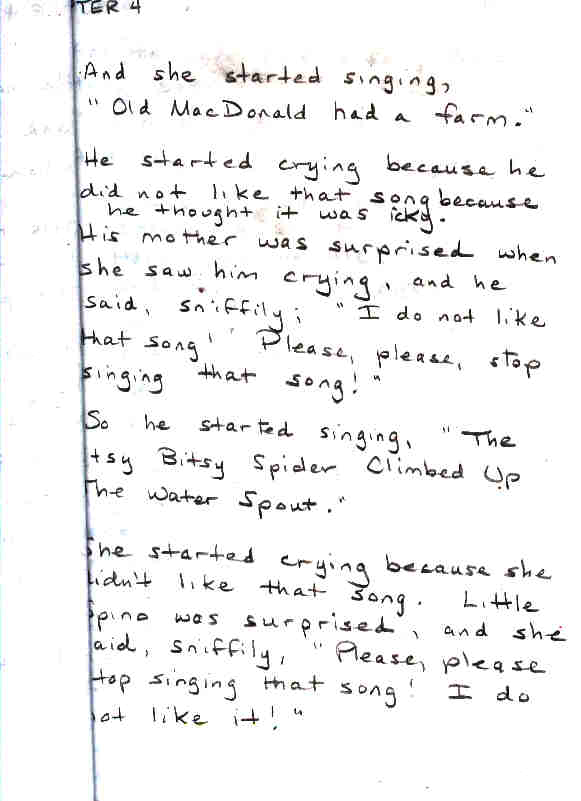 TER 4
And she started singing,
"Old MacDonald had a farm."
He started crying because he
did not like that song because
he thought it was icky.
His mother was surprised when
she saw him crying, and he
said, sniffily; "I do not like
that song! Please, please, stop
singing that song!"
So he started singing, "The
tsy Bitsy Spider Climbed Up
The Water Spout."
She started crying because she
didn't like that song. Little
Spino was surprised, and she
aid, sniffily, "Please, please
top singing that song! I do
ot like it!"